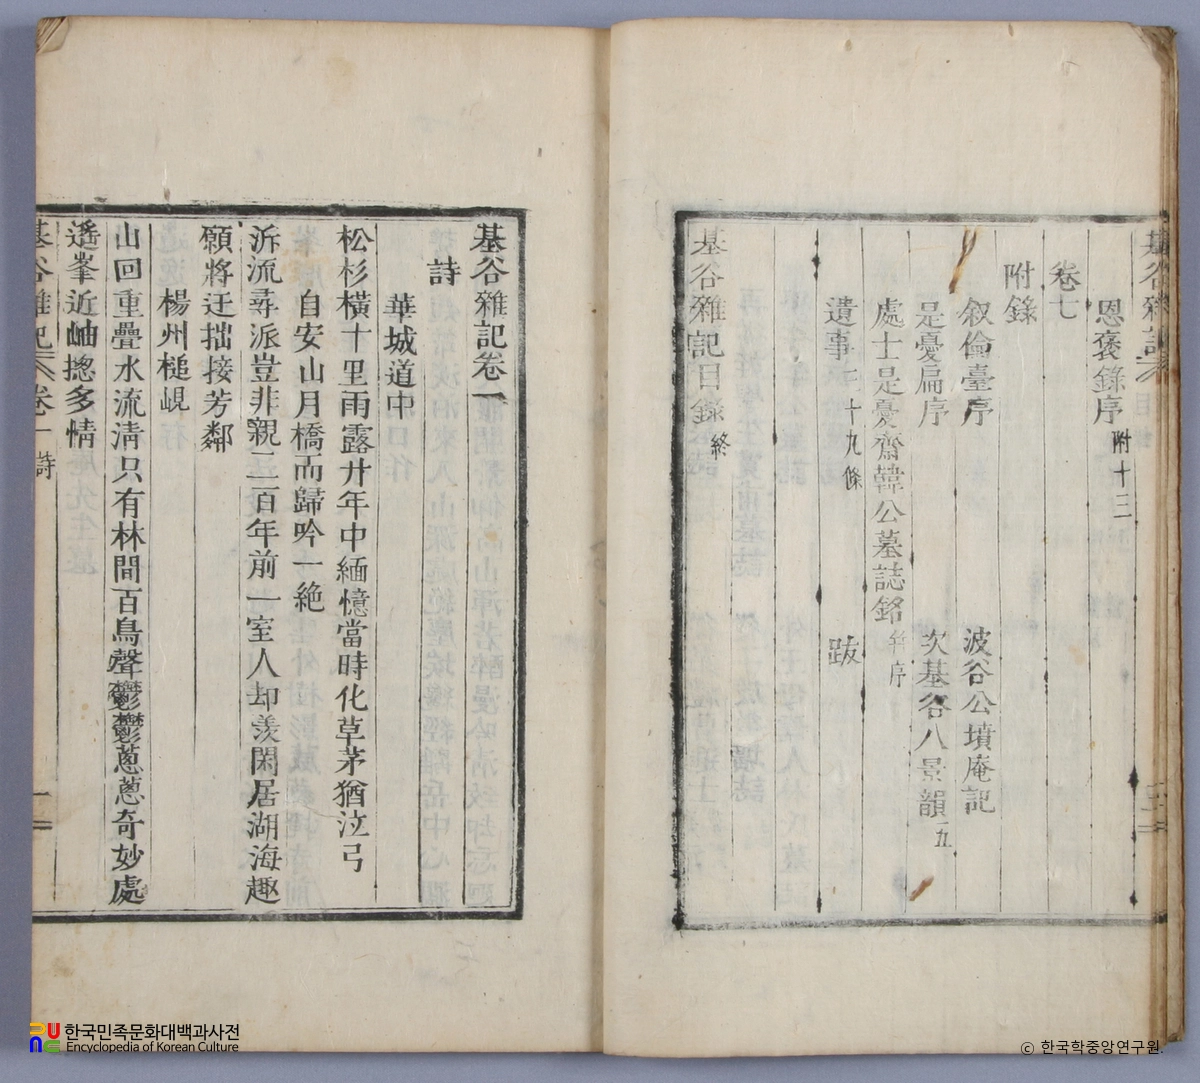 恩褒錄序 附十三
卷七
附錄
叙倫臺序 波谷公墳庵記
是憂扁序 次基谷八景韻 五
處士是憂齋韓公墓誌銘 并序
遺事二十九條 跋
基谷雜記目錄 終
基谷雜記卷一
詩
華城道中
松杉橫十里雨露廾年中緬憶當時化草茅猶泣弓
自安山月橋而歸吟一絶
泝流尋派豈非親二百年前一室人却羨閑居湖海趣
願將迂拙接芳鄰
楊州槌峴
山回重疊水流淸只有林間百鳥聲鬱鬱蔥蔥奇妙處
遥峯近岫摠多情
基谷雜記 卷一 詩 一
한국민족문화대백과사전
Encyclopedia of Korean Culture
© 한국학중앙연구원.